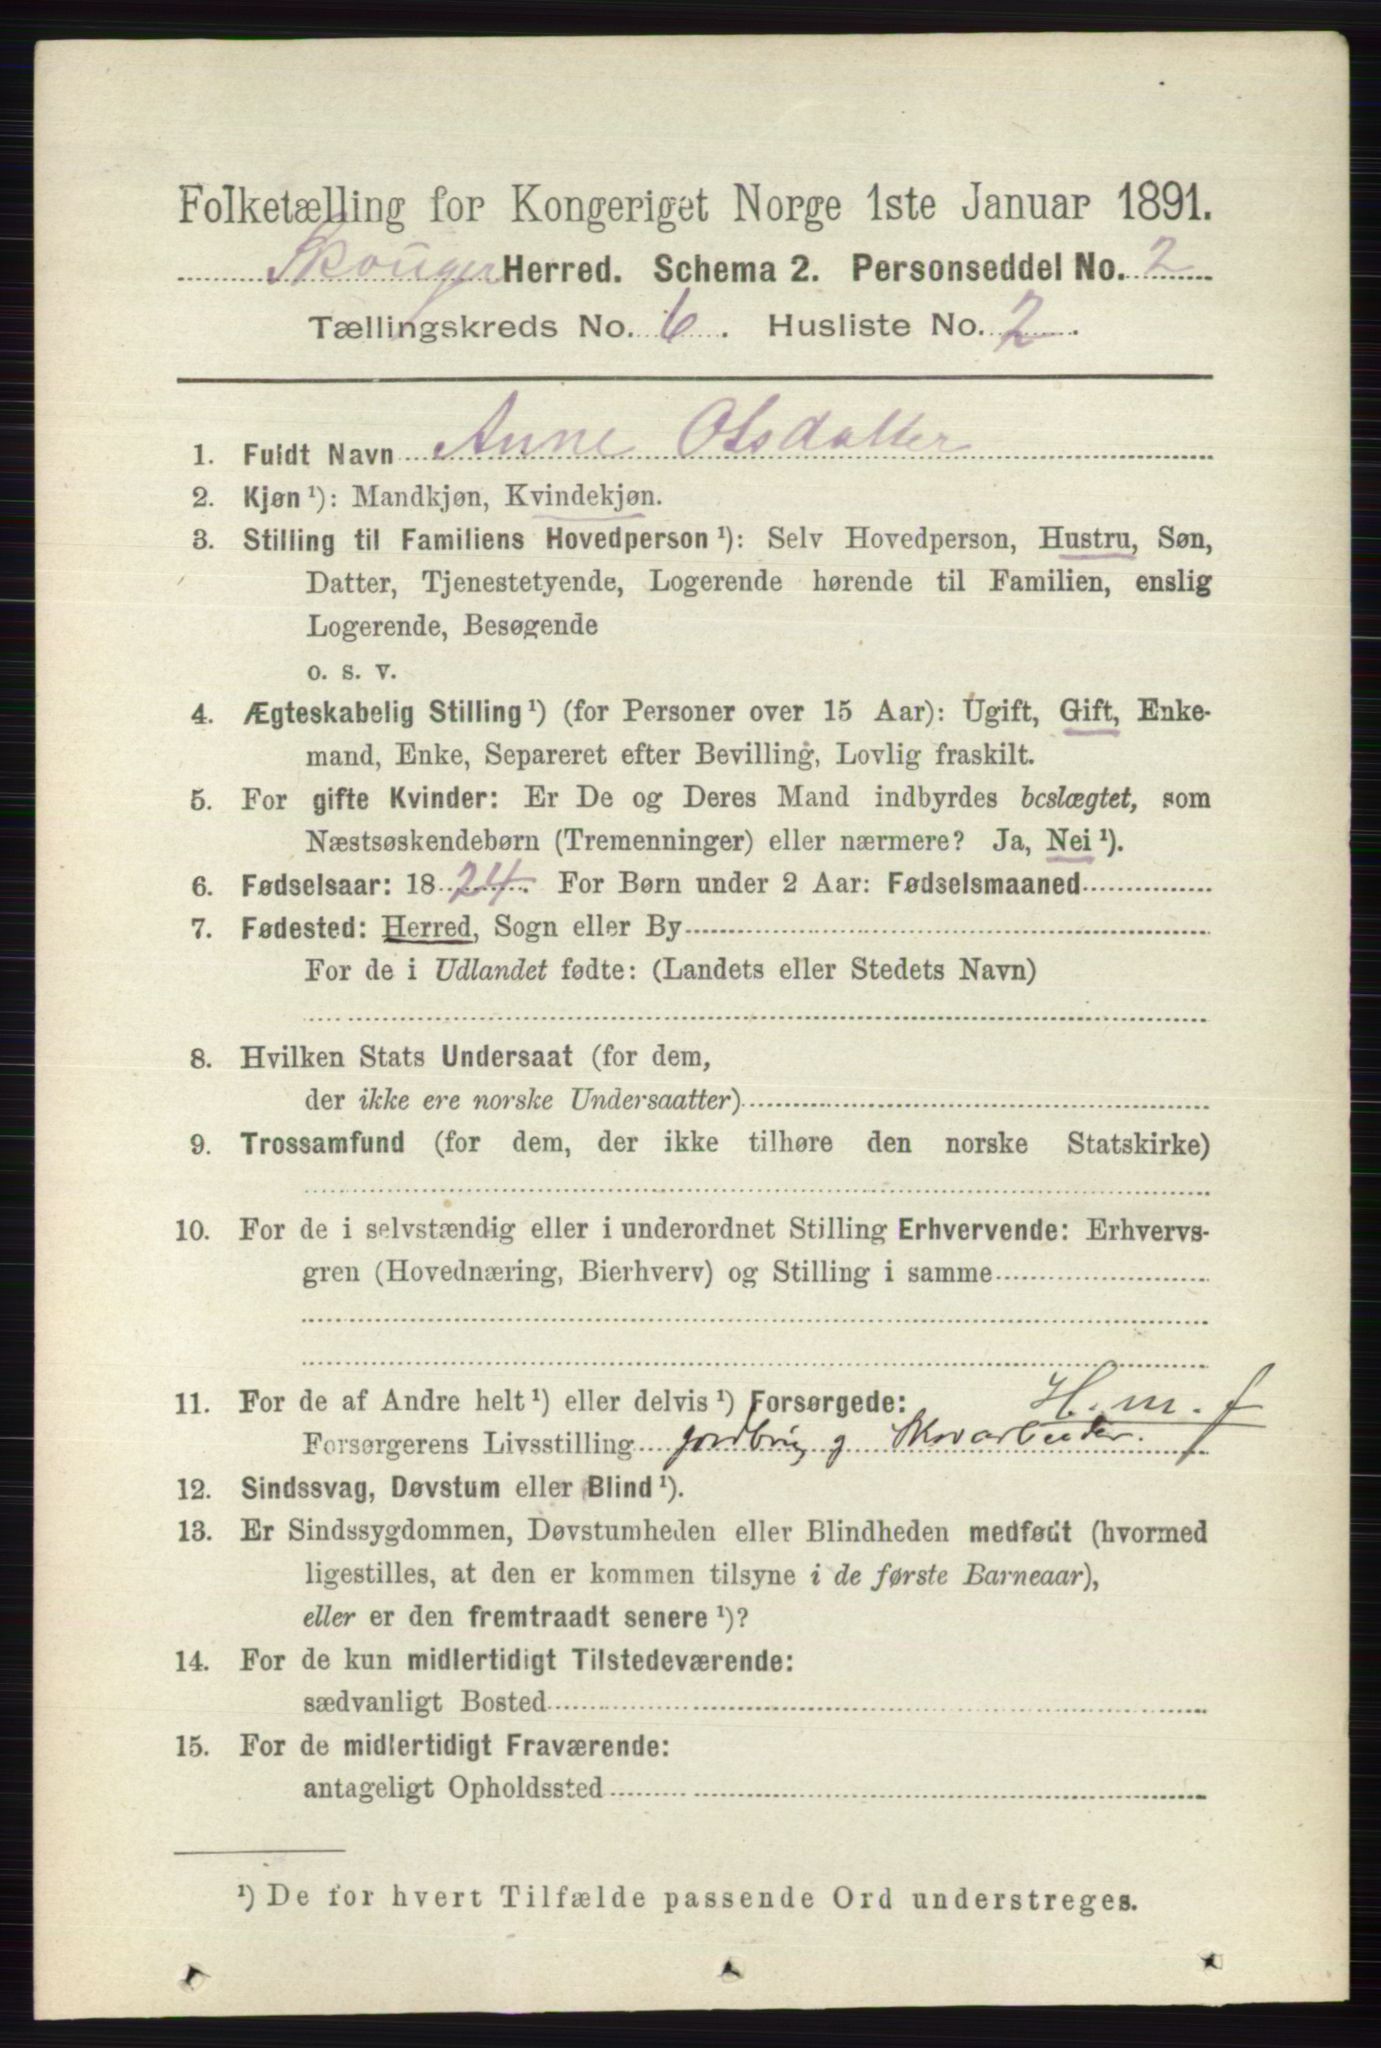 Folketælling for Kongeriget Norge 1ste Januar 1891.
Skouger Herred. Schema 2. Personseddel No. 2
Tællingskreds No. 6. Husliste No. 2.
1. Fuldt Navn Anne Olsdatter
2. Kjøn ¹): Mandkjøn, Kvindekjøn.
3. Stilling til Familiens Hovedperson ¹): Selv Hovedperson, Hustru, Søn,
Datter, Tjenestetyende, Logerende hørende til Familien, enslig
Logerende, Besøgende
o. s. v.
4. Ægteskabelig Stilling ¹) (for Personer over 15 Aar): Ugift, Gift, Enke-
mand, Enke, Separeret efter Bevilling, Lovlig fraskilt.
5. For gifte Kvinder: Er De og Deres Mand indbyrdes beslægtet, som
Næstsøskendebørn (Tremenninger) eller nærmere? Ja, Nei ¹).
6. Fødselsaar: 1824. For Børn under 2 Aar: Fødselsmaaned
7. Fødested: Herred, Sogn eller By
For de i Udlandet fødte: (Landets eller Stedets Navn)
8. Hvilken Stats Undersaat (for dem,
der ikke ere norske Undersaatter)
9. Trossamfund (for dem, der ikke tilhøre den norske Statskirke)
10. For de i selvstændig eller i underordnet Stilling Erhvervende: Erhvervs-
gren (Hovednæring, Bierhverv) og Stilling i samme
11. For de af Andre helt ¹) eller delvis ¹) Forsørgede: H. m. f
Forsørgerens Livsstilling jordbrug Skovarbeider.
12. Sindssvag, Døvstum eller Blind ¹).
13. Er Sindssygdommen, Døvstumheden eller Blindheden medfødt (hvormed
ligestilles, at den er kommen tilsyne i de første Barneaar),
eller er den fremtraadt senere ¹)?
14. For de kun midlertidigt Tilstedeværende:
sædvanligt Bosted
15. For de midlertidigt Fraværende:
antageligt Opholdssted
¹) De for hvert Tilfælde passende Ord understreges.